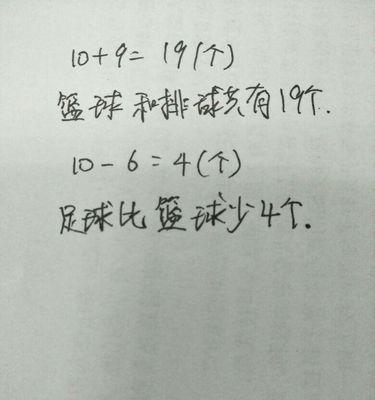 10+9=19(个)
篮球和排球共有19个.
10-6=4(个)
足球比篮球少4个.